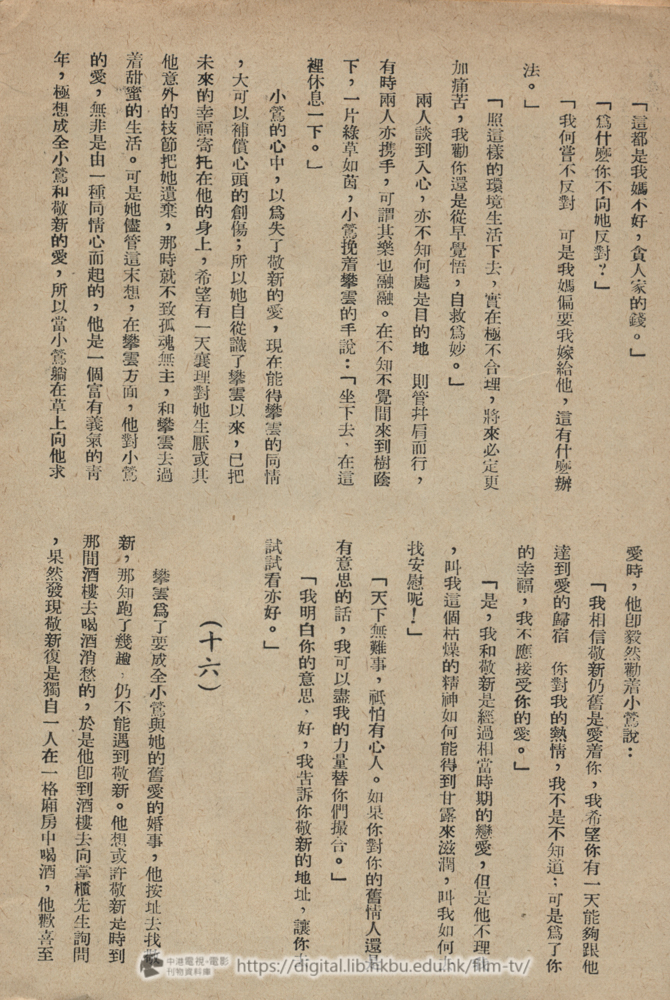 「這都是我媽不好，貪人家的錢。」
「爲什麼你不向她反對？」
「我何嘗不反對　可是我媽偏要我嫁給他，這有什麼辦
法。」
「照這樣的環境生活下去，實在極不合理，將來必定更
加痛苦，我勸你還是從早覺悟，自救爲妙。」
兩人談到入心，亦不知何處是目的地　則管幷肩而行，
有時兩人亦携手，可謂其樂也融融。在不知不覺間來到樹蔭
下，一片綠草如茵，小鶯挽着攀雲的手說：「坐下去、在這
裡休息一下。」
小鶯的心中，以爲失了敬新的愛，現在能得攀雲的同情
，大可以補償心頭的創傷；所以她自從識了攀雲以來，已把
未來的幸福寄托在他的身上，希望有一天襄理對她生厭或其
他意外的枝節把她遺棄，那時就不致孤魂無主，和攀雲去過
着甜蜜的生活。可是她儘管這末想，在攀雲方面，他對小鶯
的愛，無非是由一種同情心而起的，他是一個富有義氣的靑
年，極想成全小鶯和敬新的愛，所以當小鶯躺在草上向他求
愛時，他卽毅然勸着小鶯說：
「我相信敬新仍舊是愛着你，我希望你有一天能夠跟他
達到愛的歸宿　你對我的熱情，我不是不知道；可是爲了你
的幸福，我不應接受你的愛。」
「是，我和敬新是經過相當時期的戀愛，但是他不理
，叫我這個枯燥的精神如何能得到甘露來滋潤，叫我如何
找安慰呢！」
「天下無難事，祇怕有心人。如果你對你的舊情人還
有意思的話，我可以盡我的力量替你們撮合。」
「我明白你的意思、好，我告訴你敬新的地址，讓你
試試看亦好。」
（十六）
攀雲爲了要成全小鶯與她的舊愛的婚事，他按址去找
新，那知跑了幾趟，仍不能遇到敬新。他想或許敬新是時到
那間酒樓去喝酒消愁的，於是他卽到酒樓去向掌櫃先生詢問
，果然發現敬新復是獨自一人在一格廂房中喝酒，他歡喜至
中港電視・電影
刊物資料庫
https://digital.lib.hkbu.edu.hk/film-tv/